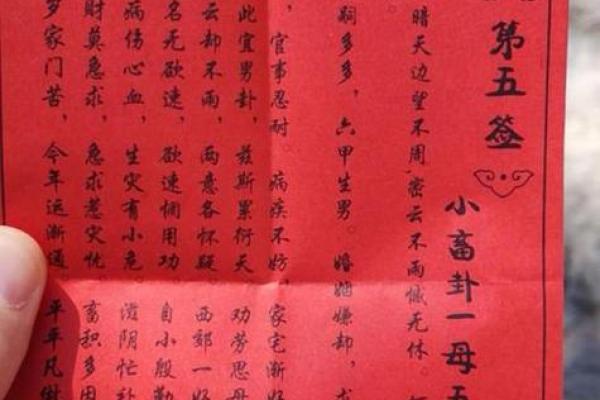 第五签
小畜卦一母五
暗天边望不周,密云不雨憾无休。
嗣多多,六甲生男。婚姻嫌却,
,官事忍耐。病疾不妨,家宅渐好
此宜男卦,兹斯累衍天。劝劳思母
云却不雨,两意各怀疑。西郊一好
名无欲速,欲速惘用功。自小殷勤
病伤心血,生灾有小危。滋阴忙补
财莫急求,急求惹灾忧。畜积多因
多家门苦,今年运渐通。平平凡